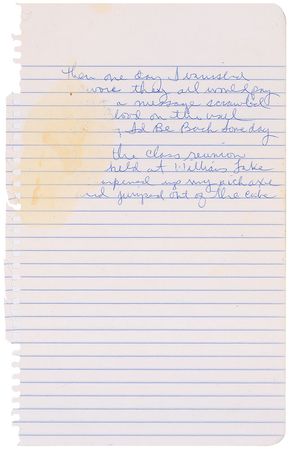 then one day I vanished
wore they all would pay
a message scrawled
lood on the wall
I'd Be Back Someday
the class reunion
held at Williams Lake
harpened up my pick axe
nd jumped out of the cake